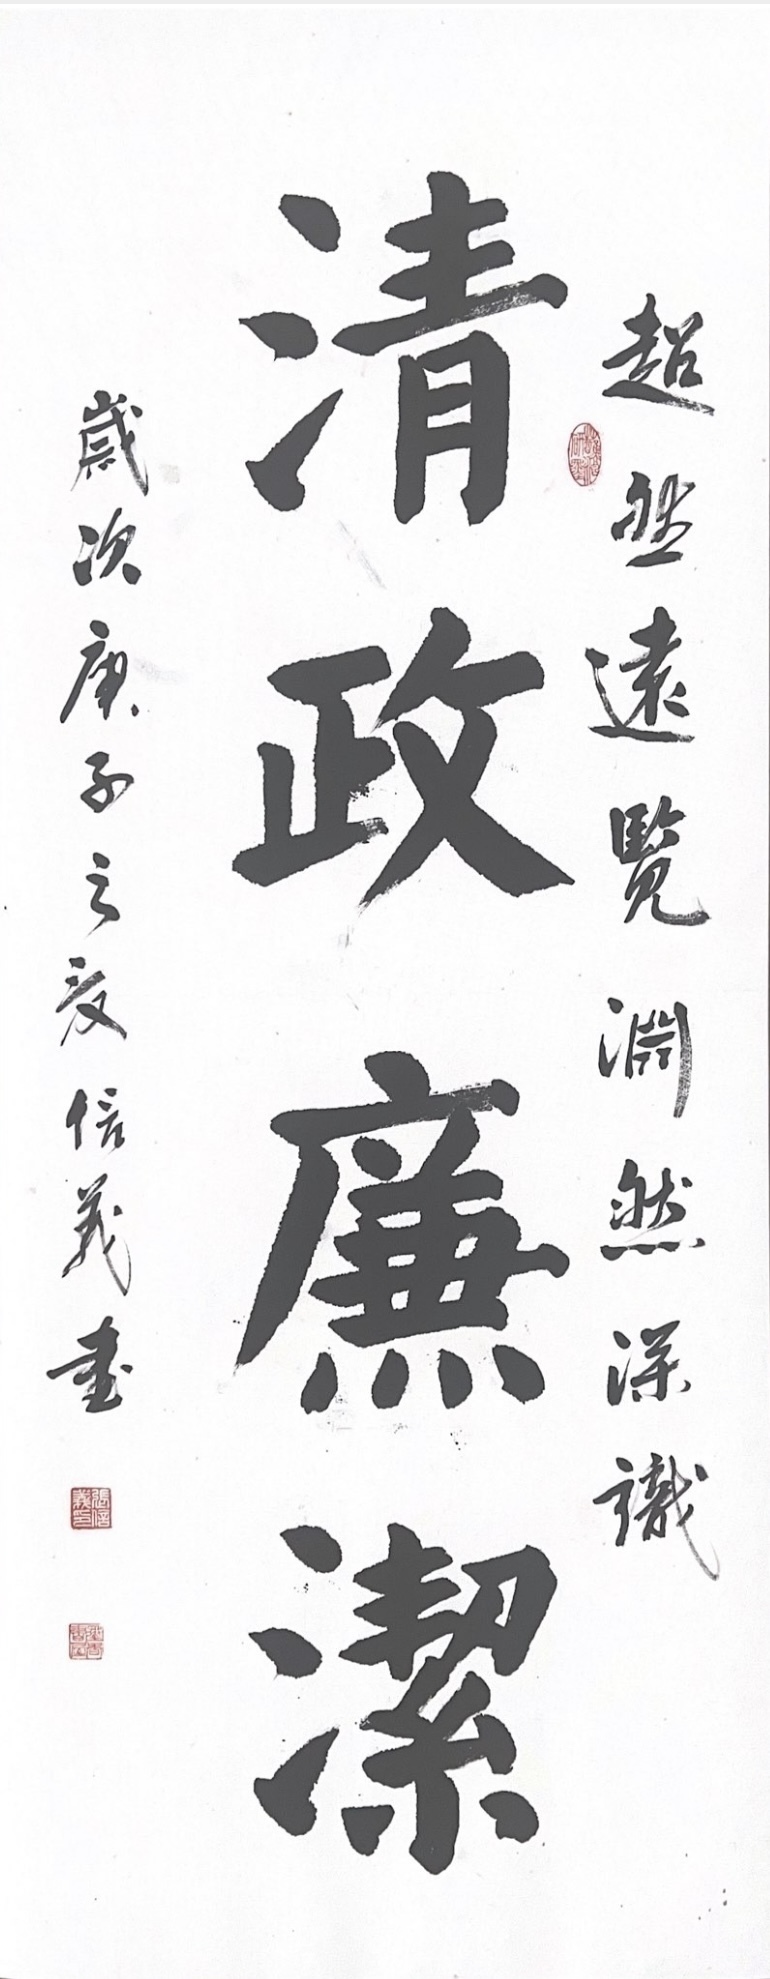 超然遠覽淵然深識
清政廉潔
歲次庚子之夏信義書
張信義印